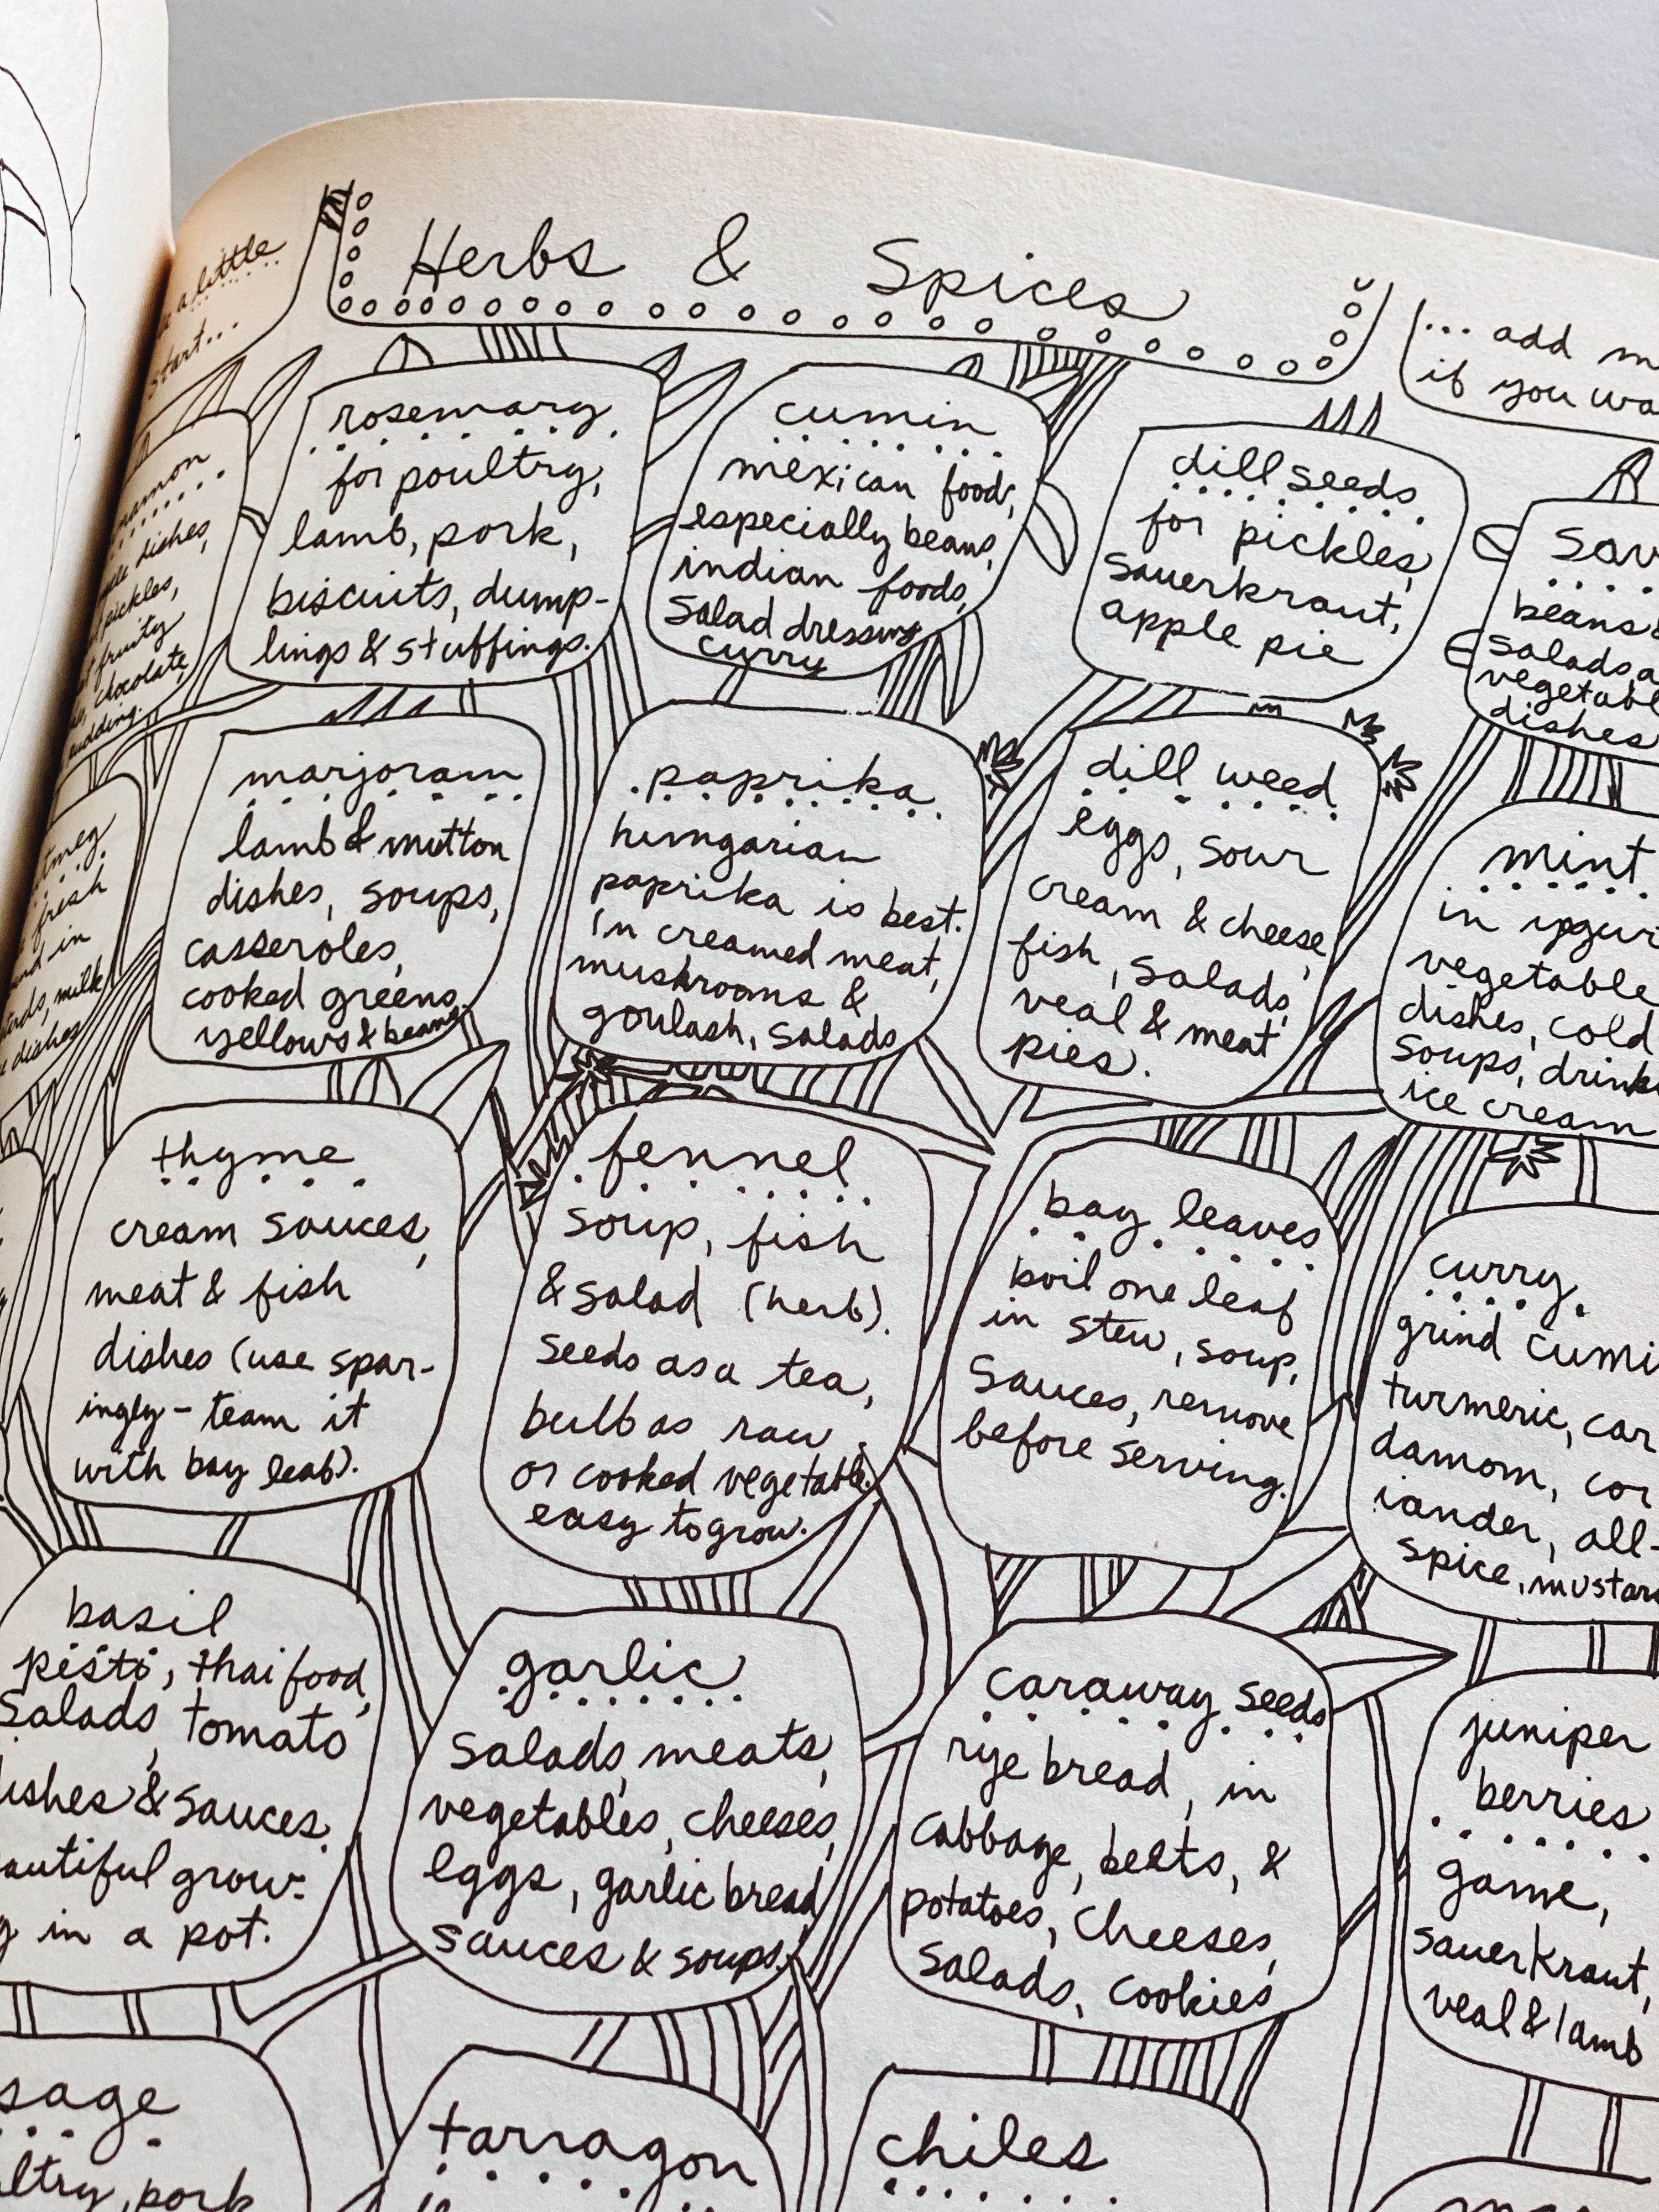 Herbs & Spices
a little
start...
... add
if you
dishes,
pickles,
fruity
chocolate,
pudding.
rosemary
for poultry,
lamb, pork,
biscuits, dump-
lings & stuffings.
cumin
mexican foods,
especially beans,
indian foods,
salad dressing
curry
dill seeds
for pickles,
sauerkraut,
apple pie
beans &
salads
dishes
fresh
in
milk
dishes
marjoram
lamb & mutton
dishes, soups,
casseroles,
cooked greens,
yellows & beans
paprika
hungarian
paprika is best.
in creamed meat,
mushrooms &
goulash, salads
dill weed
eggs, sour
cream & cheese,
fish, salads,
veal & meat
pies.
mint
in
vegetable
dishes, cold
soups,
ice cream
thyme
cream sauces,
meat & fish
dishes (use spar-
ingly - team it
with bay leaf).
fennel
soup, fish
& salad (herb).
seeds as a tea,
bulb as raw
or cooked vegetable.
easy to grow.
bay leaves
boil one leaf
in stew, soup,
sauces, remove
before serving.
curry
grind
turmeric, car
damom, cor
iander, all-
spice,
basil
pesto, thai food,
salads, tomato
& sauces.
grow-
in a pot.
garlic
salads, meats,
vegetables, cheeses,
eggs, garlic bread,
sauces & soups.
caraway seeds
rye bread, in
cabbage, beets, &
potatoes, cheeses,
salads, cookies
juniper
berries
game,
sauerkraut,
veal & lamb
sage
pork
tarragon
chiles